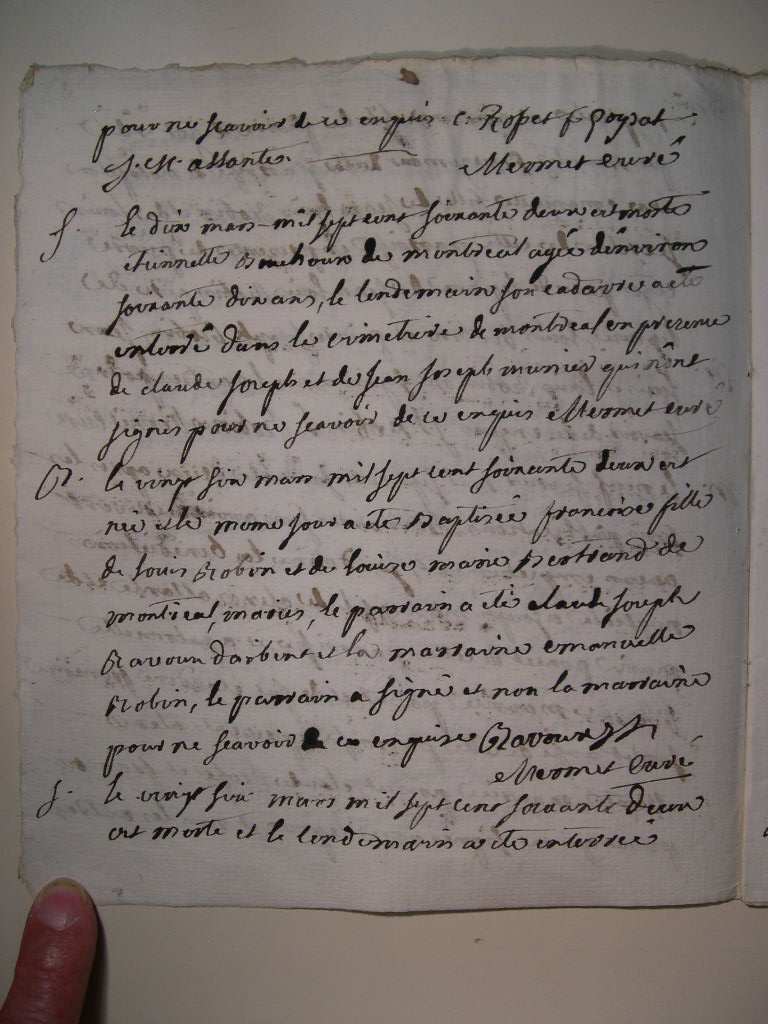 pour ne scavoir de ce enquis C. Ropet f poysat
J. M. assante. Mermet curé
S. Le dix mars mil sept cent soixante deux est morte
etiennette de montreal agée d'environ
soixante dix ans, le lendemain son cadavre a été
enterré dans le cimetiere de montreal en presence
de claude Joseph et de Jean Joseph munier qui n'ont
signés pour ne scavoir de ce enquis Mermet curé
B. le vingt six mars mil sept cent soixante deux est
née et le meme jour a ete Baptisée francoise fille
de Louis Robin et de Louise marie Bertrand de
montreal, mariés, le parrain a eté claude Joseph
Ravoux d'arbent et la marraine emanuelle
Robin, le parrain a signé et non la marraine
pour ne scavoir de ce enquise Ravoux
Mermet Curé
S. le vingt six mars mil sept cent soixante deux
est morte et le lendemain a ete enterrée